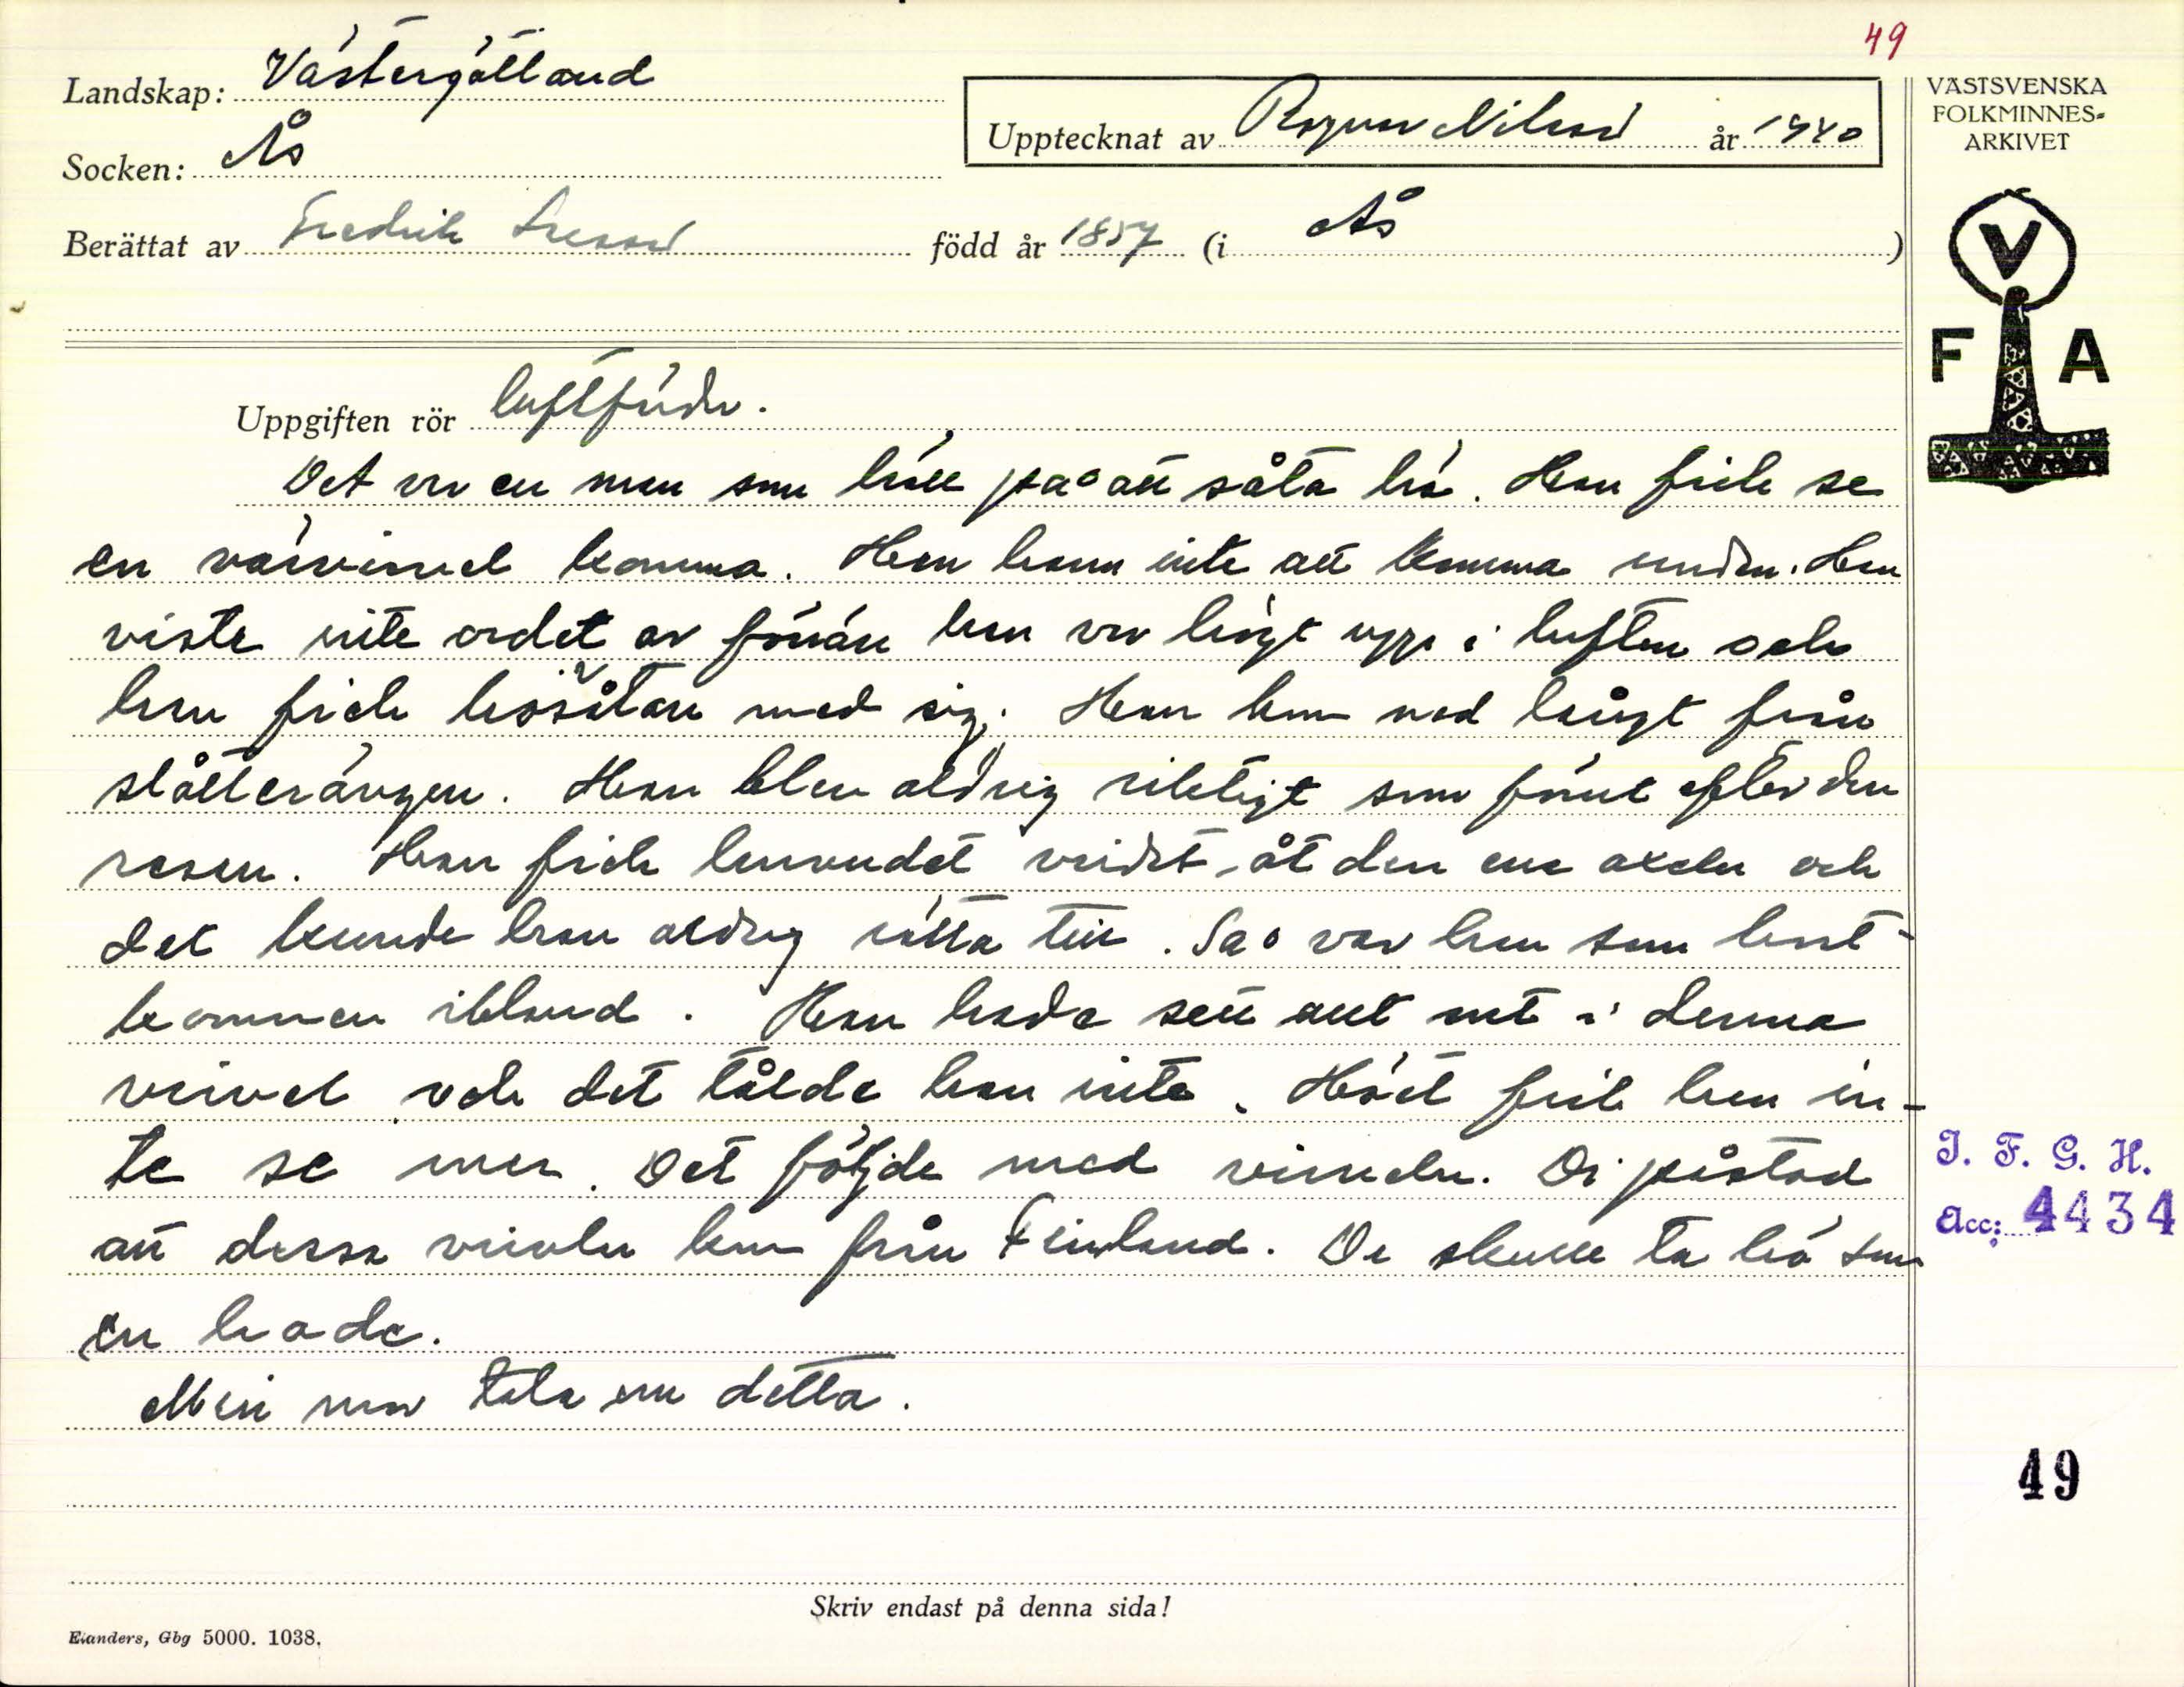 49
Landskap: Västergötland
VÄSTSVENSKA
FOLKMINNES-
ARKIVET
Upptecknat av Ragnar Nilsson år 1940
Socken: Ås
Berättat av Fredrik född år 1857 (i Ås)
V
F A
Uppgiften rör luftfärder.
Det var en man som höll på att såta hö. Han fick se
en värvirvel komma. Han hann inte att komma undan. Han
viste inte ordet av förrän han var högt uppe i luften och
han fick hösåtan med sig. Han kom ned långt från
slåtterängen. Han blev aldrig riktigt som förut efter den
resan. Han fick huvudet vridet åt den ena axeln och
det kunde han aldrig rätta till. Så var han som bort-
kommen ibland. Han hade sett allt ont i denna
virvel och det tålde han inte. Höet fick han in-
te se mer. Det följde med virveln. Di påstod
att dessa virvlar kom från Finland. De skulle ta hö som
en hade.
Min mor tala om detta.
I. F. G. H.
Acc: 4434
49
Skriv endast på denna sida!
Elanders, Gbg 5000. 1038.